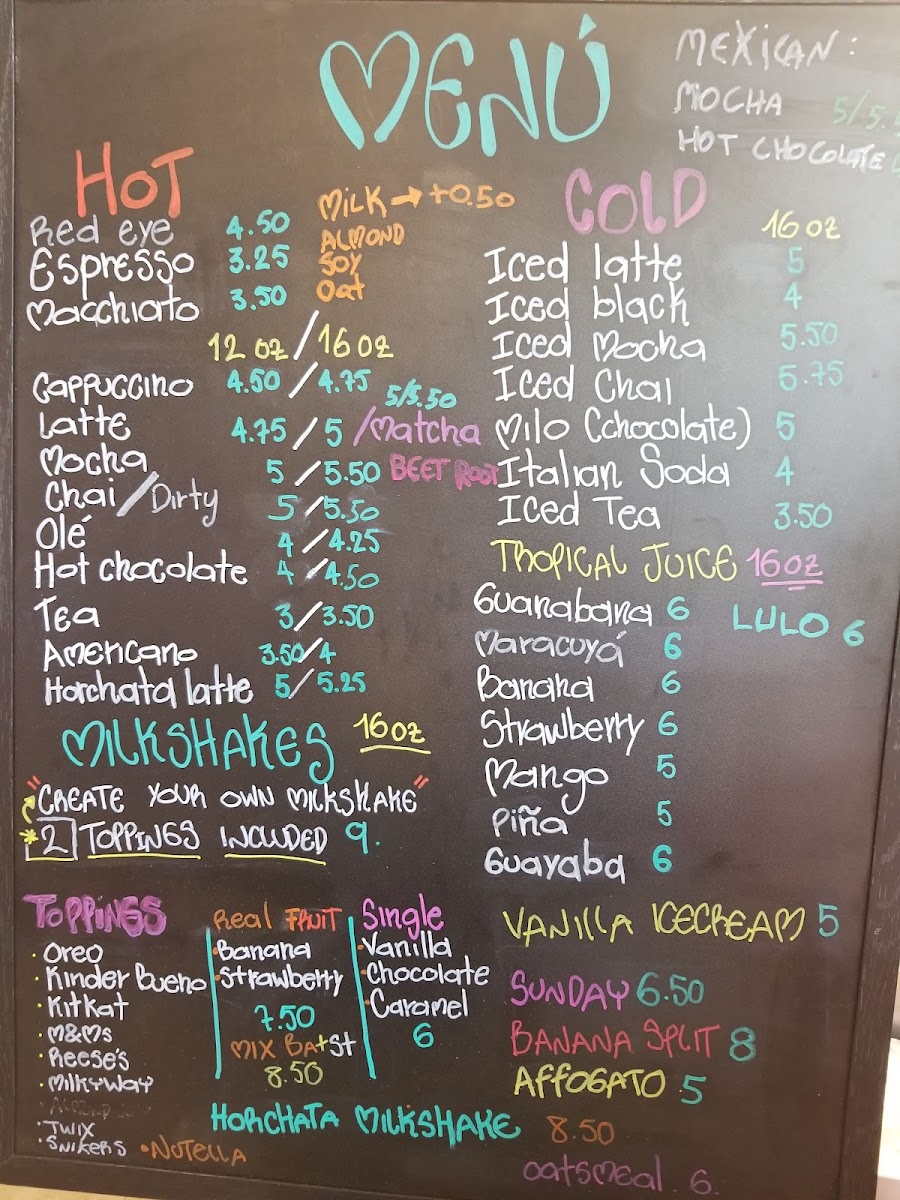 MENÚ
MEXICAN:
MOCHA 5/5.
HOT CHOCOLATE
HOT
MILK → +0.50
ALMOND
SOY
Oat
Red eye 4.50
Espresso 3.25
Macchiato 3.50
12 oz / 16 oz
Cappuccino 4.50 / 4.75
Latte 4.75 / 5 / Matcha 5/5.50
BEET ROOT
Mocha 5 / 5.50
Chai / Dirty 5 / 5.50
Olé 4 / 4.25
Hot chocolate 4 / 4.50
Tea 3 / 3.50
Americano 3.50/4
Horchata latte 5 / 5.25
MILKSHAKES 16 oz
"CREATE YOUR OWN MILKSHAKE"
* 2 TOPPINGS INCLUDED 9.
TOPPINGS
· Oreo
· Kinder Bueno
· KitKat
· M&Ms
· Reese's
· MilkyWay
· TWIX
· SNIKERS
· NUTELLA
Real FRUIT
· Banana
· Strawberry
7.50
MIX Ba+St
8.50
Single
· Vanilla
· Chocolate
· Caramel
6
HORCHATA MILKSHAKE 8.50
COLD
16 oz
Iced latte 5
Iced black 4
Iced Mocha 5.50
Iced Chai 5.75
Milo (chocolate) 5
Italian Soda 4
Iced Tea 3.50
TROPICAL JUICE 16 oz
Guanabana 6
LULO 6
Maracuyá 6
Banana 6
Strawberry 6
Mango 5
Piña 5
Guayaba 6
VANILLA ICECREAM 5
SUNDAY 6.50
BANANA SPLIT 8
AFFOGATO 5
oatsmeal 6.